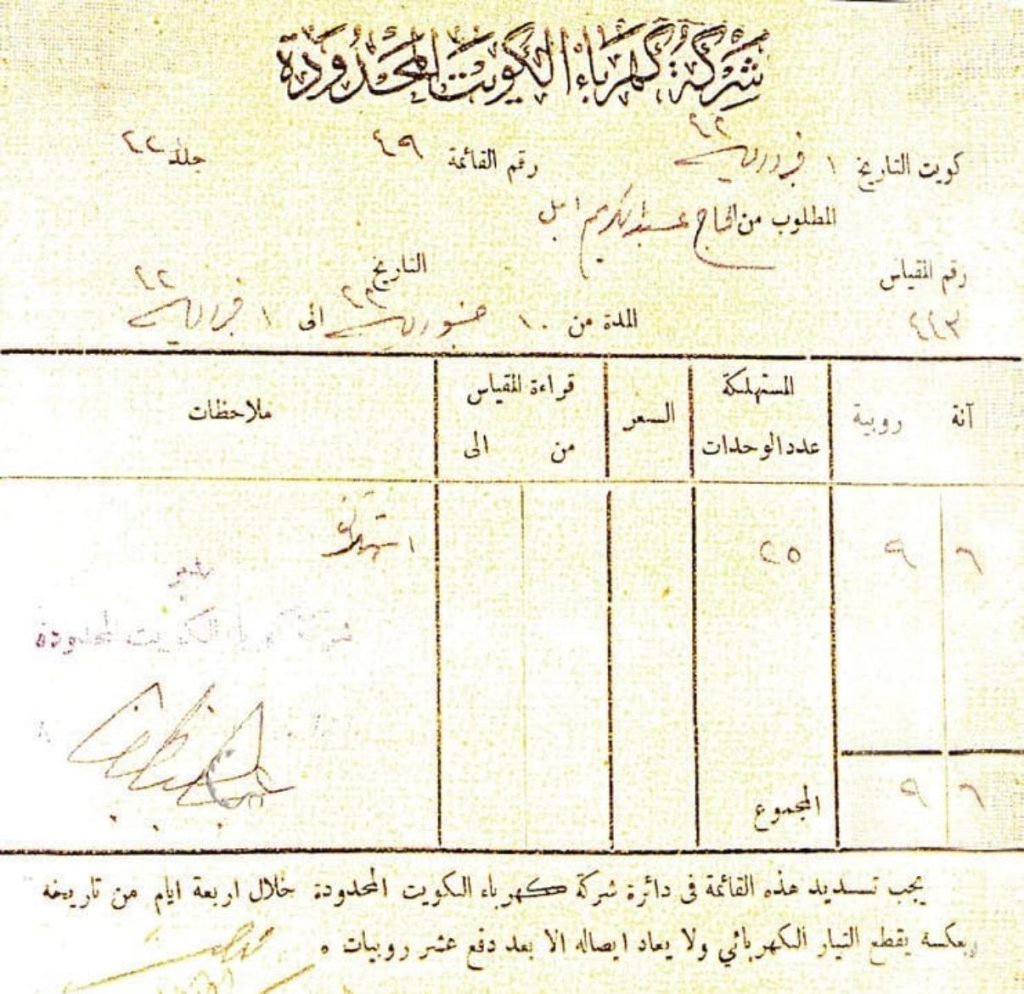 شركة كهرباء الكويت المحدودة
كويت التاريخ ١ فبروري ٤٢ رقم القائمة ٤٩ جلد ٤٢
المطلوب من الحاج عبدالكريم ابل
رقم المقياس التاريخ
٤٤٣ المدة من ١٠ جنوري ٤٢ الى ١ فبروري ٤٢
آنة روبية المستهلكة عدد الوحدات السعر قراءة المقياس من الى ملاحظات
٦ ٩ ٢٥ استهلاك
مدير
شركة كهرباء الكويت المحدودة
٦ ٩ المجموع
يجب تسديد هذه القائمة فى دائرة شركة كهرباء الكويت المحدودة خلال اربعة ايام من تاريخه
وبعكسه يقطع التيار الكهربائي ولا يعاد ايصاله الا بعد دفع عشر روبيات ه